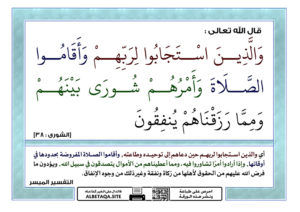 قال الله تعالى :
وَالَّذِينَ اسْتَجَابُوا لِرَبِّهِمْ وَأَقَامُوا
الصَّلَاةَ وَأَمْرُهُمْ شُورَى بَيْنَهُمْ
وَمِمَّا رَزَقْنَاهُمْ يُنفِقُونَ
[الشورى : ٣٨]
أي والذين استجابوا لربهم حين دعاهم إلى توحيده وطاعته، وأقاموا الصلاة المفروضة بحدودها في
أوقاتها، وإذا أرادوا أمرًا تشاوروا فيه، ومما أعطيناهم من الأموال يتصدقون في سبيل الله، ويؤدون ما
فرض الله عليهم من الحقوق لأهلها من زكاة ونفقة وغير ذلك من وجوه الإنفاق.
التفسير الميسر
احرص على طباعة
ونشر هذه الورقة
ALBETAQA.SITE